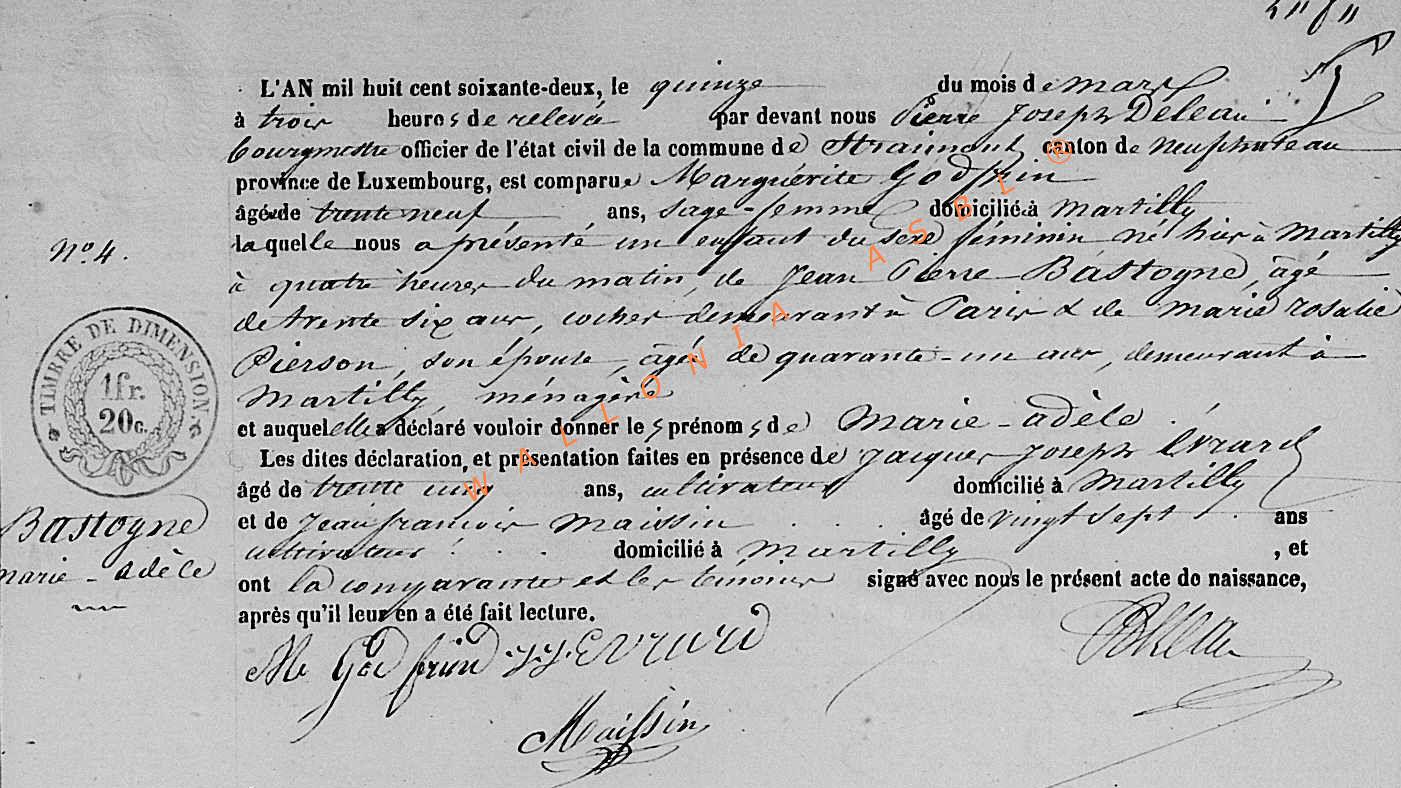 L'AN mil huit cent soixante-deux, le quinze du mois de mars
à trois heures de relevée par devant nous Pierre Joseph Deleau
bourgmestre officier de l'état civil de la commune de Straimont canton de Neufchateau
province de Luxembourg, est comparue Marguerite Godfrin
âgée de trente neuf ans, sage-femme domiciliée à Martilly
laquelle nous a présenté un enfant du sexe féminin né hier à Martilly
à quatre heures du matin, de Jean Pierre Bastogne, âgé
de trente six ans, cocher demeurant à Paris & de marie rosalie
Pierson, son épouse, âgée de quarante-un ans, demeurant à
Martilly, ménagère
et auquel elle a déclaré vouloir donner les prénoms de Marie-adèle.
Les dites déclaration, et présentation faites en présence de Jacques Joseph Evrard
âgé de trente cinq ans, cultivateur domicilié à Martilly
et de Jean françois Maissin âgé de vingt sept ans
cultivateur domicilié à Martilly, et
ont la comparante et les témoins signé avec nous le présent acte de naissance,
après qu'il leur en a été fait lecture.
N° 4.
TIMBRE DE DIMENSION.
1fr.
20c.
Bastogne
marie-adèle
M Godfrin J.J. EVRARD
Deleau
Maissin
WALLONIA ASBL ®